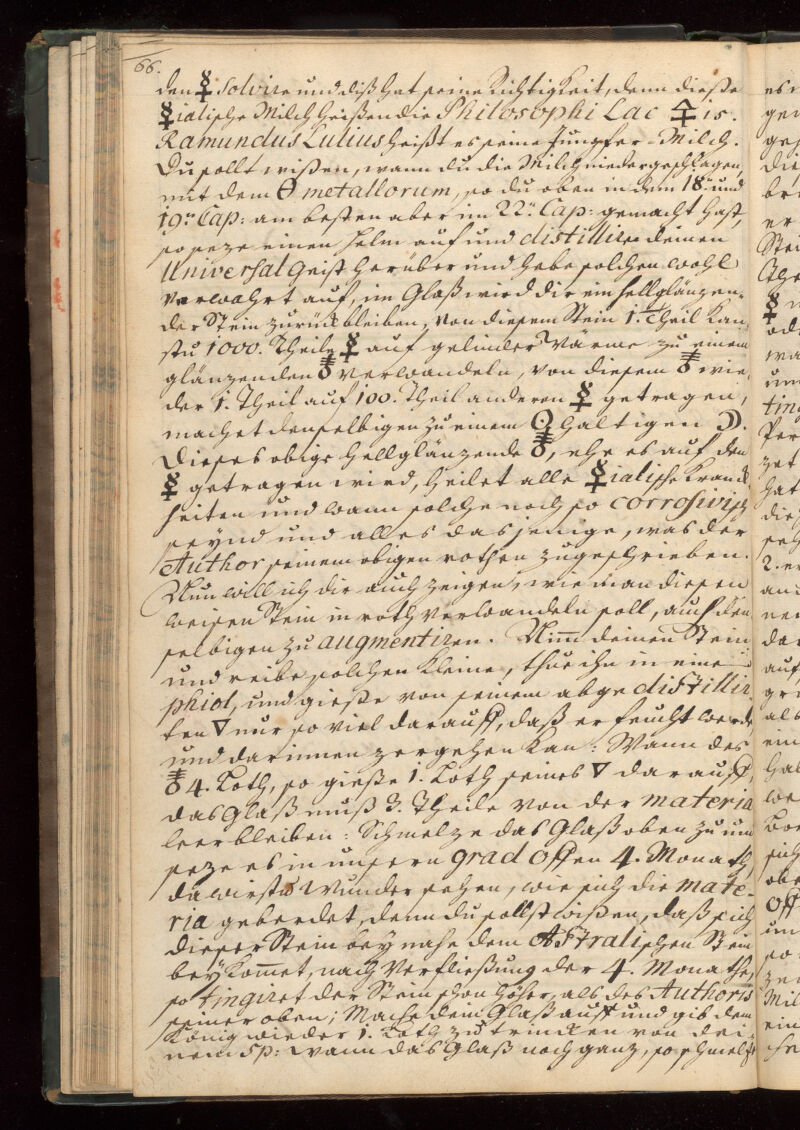 66.
den ☿ solvire und diß hat seine Richtigkeit, denn dieße
☿ialische Milch heißen die Philosophi Lac 🜍is.
Ramundus Lulius heißt es seine Jungfer-Milch.
Du sollt wißen, wann du die Milch niedergeschlagen,
mit dem 🜔 metallorum, so du oben in dem 18. und
19.n Cap: am besten aber im 22.n Cap: gemacht hast,
so seze einen Helm auf und distillire deinen
Universal Geist herüber und hebe solchen wohl
verwahrt auf, im Glaß wird dir ein hellglänzen-
der Stein zurück bleiben, von diesem Stein 1. Theil kan-
stu 1000. Theile ☿ auf gelinder Wärme zu einem
glänzenden verwandeln, von diesem wie-
der 1. Theil auf 100. Theil anderen ☿ getragen,
machet denselbigen zu einem ☉ haltigen ☽.
Dieses obige hellglänzende, ehe es auf den
☿ getragen wird, heilet alle ☿ialische Kranck-
heiten und wann solche noch so corrosivisch
seynd und alles dasjenige, was der
Author seinem obigen rothen zugeschrieben.
Nun will ich dir auch zeigen, wie man diesen
weisen Stein in roth verwandeln soll, auch den
selbigen zu augmentiren. Nim̄ deinen Stein
und reibe solchen kleine, thue ihn in eine
phiol, und gieße von seinem abgedistillir
ten 🜄 nur so viel darauff, daß er feucht werde
und darinnen zergehen kan: Wann des
4. Loth, so gieße 1. Loth seines 🜄 darauff,
das Glaß muß 3. Theile von der materia
leer bleiben: Schmelze das Glaß oben zu und
seze es in unsern grad Offen 4. Monath,
da wirstu Wunder sehen, wie sich die mate-
ria geberdet, denn du sollst wißen, daß sich
dieser Stein bey nahe dem Astralischen Stein
bey kom̄et, nach Verfließung der 4. Monathe,
so tingiret der Stein schon höher, als des Authoris
seiner oben; Mache dein Glaß auff und gib dem
König wieder 1. Loth zu trincken von dei-
nem sp: wann das Glaß noch ganz, so schmelz